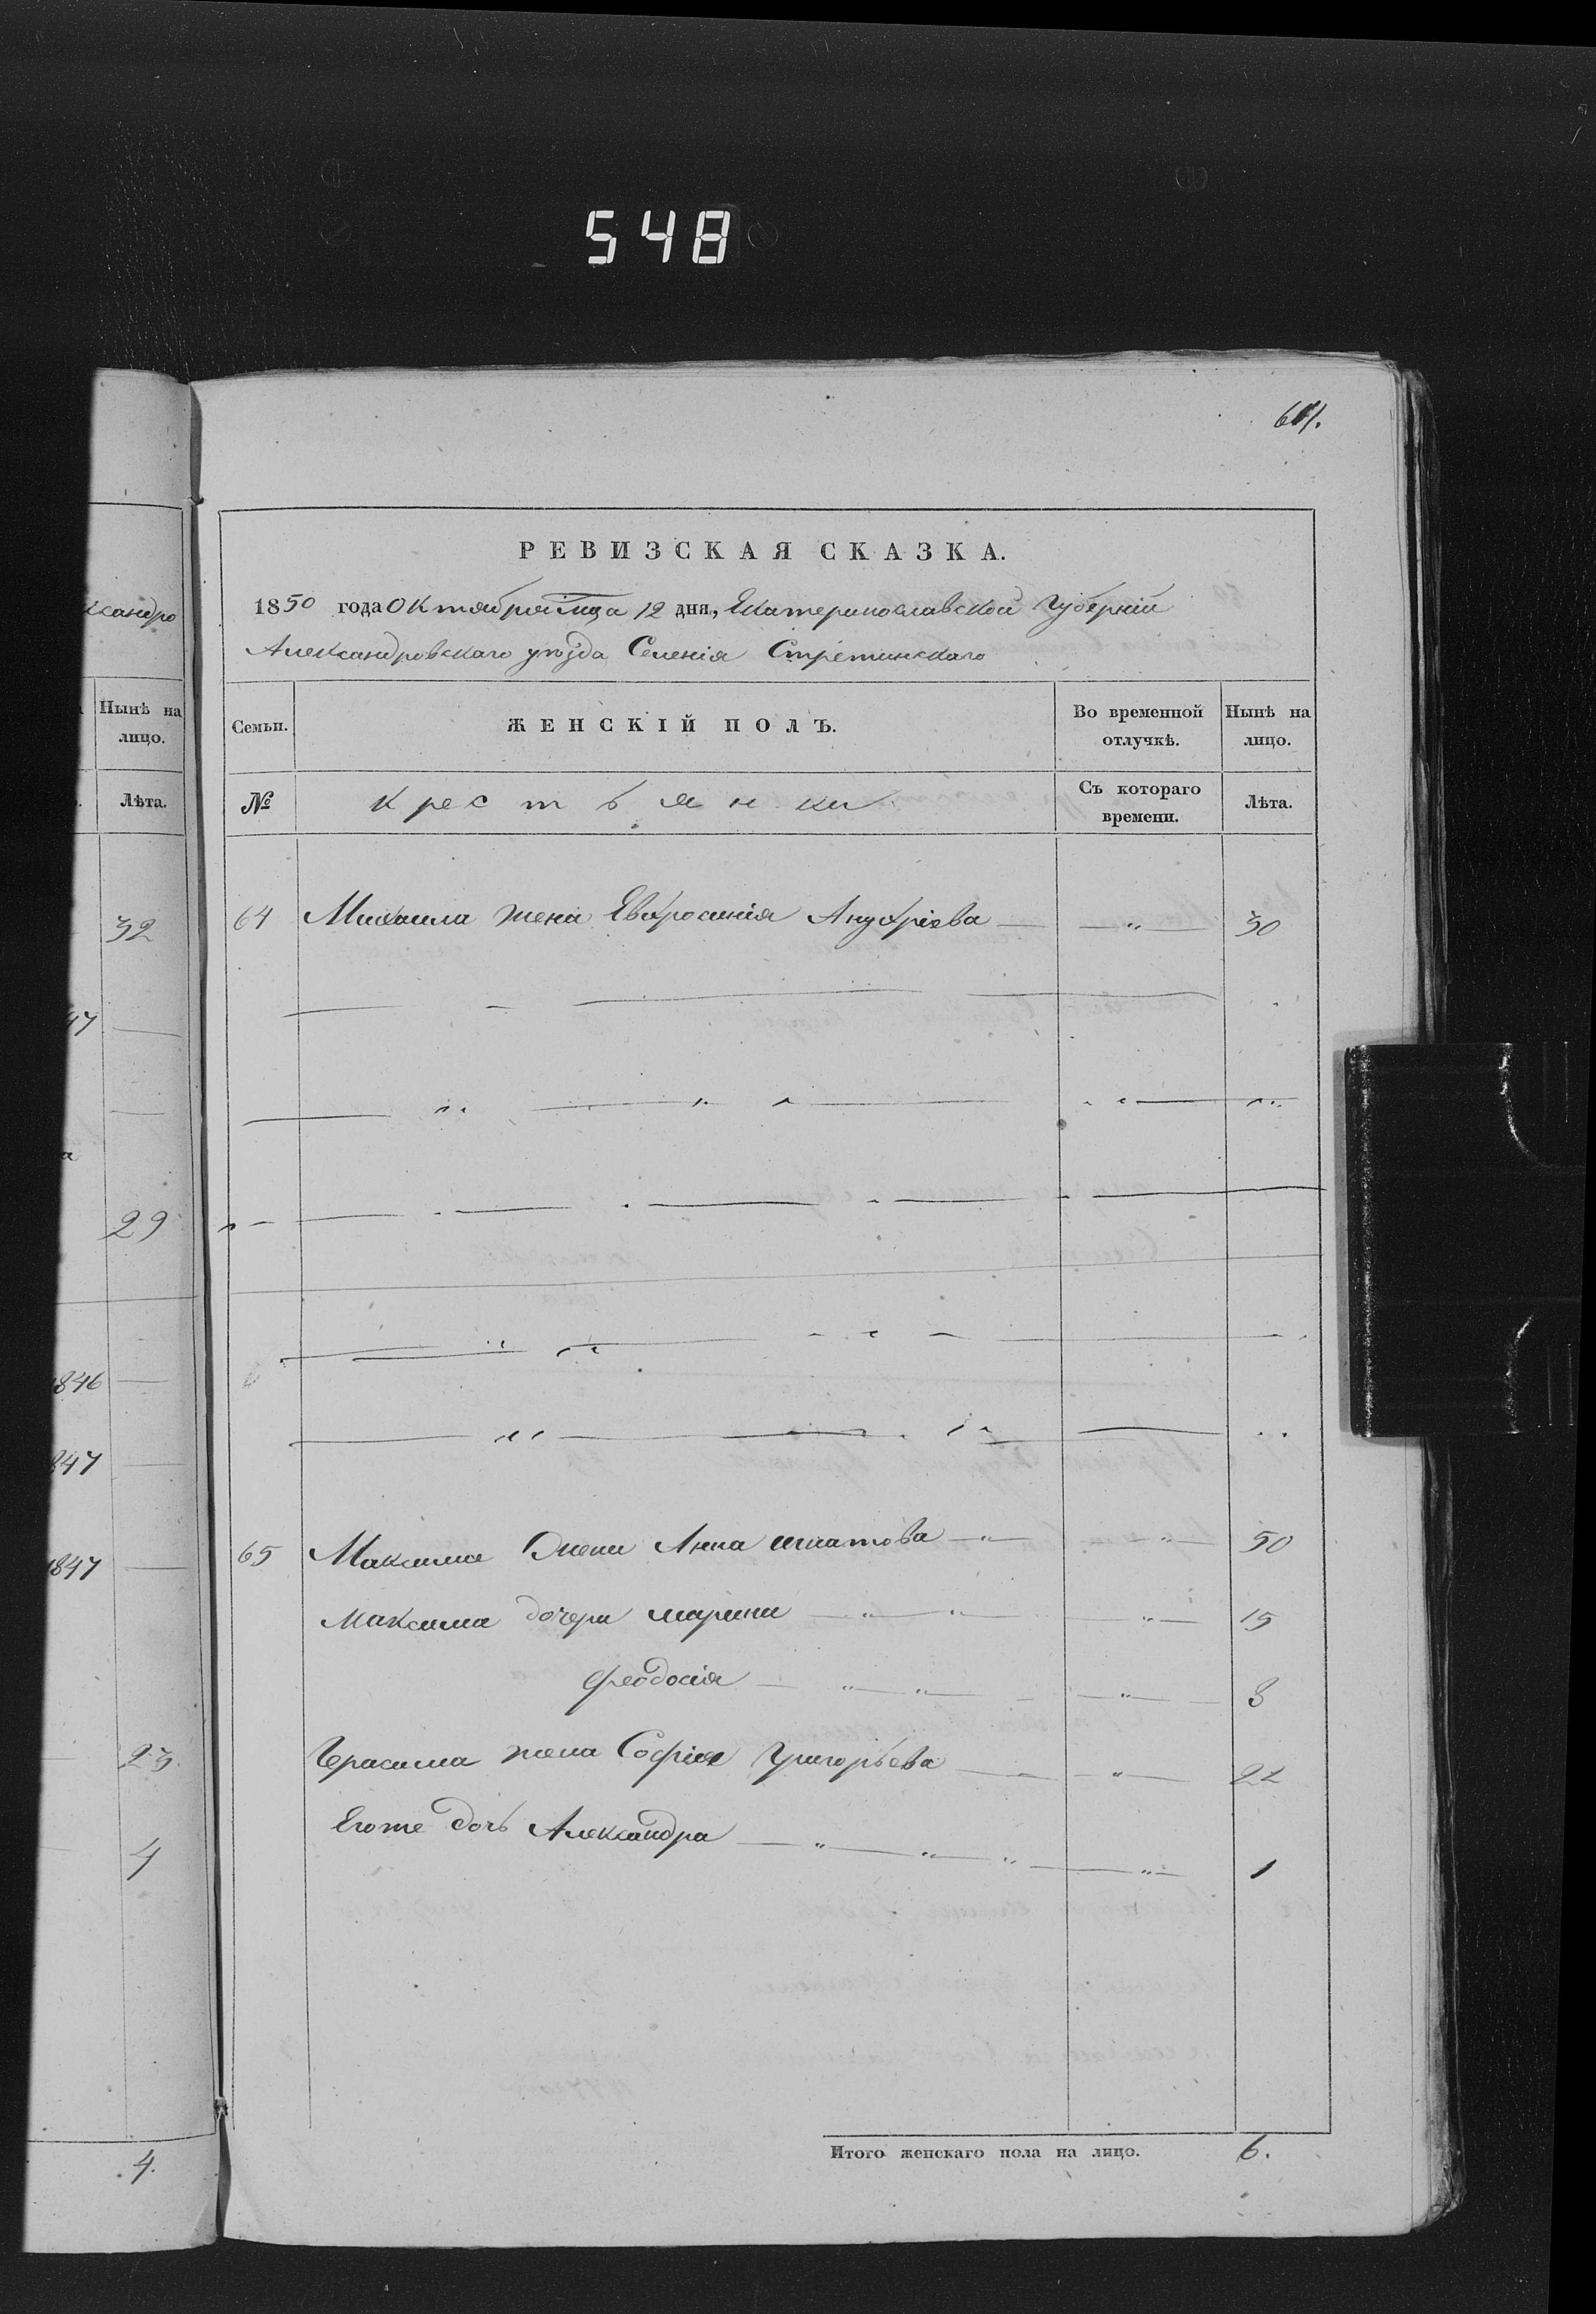 548
601.
ксандро
Нынѣ на
лицо.
Лѣта.
32
47
29
1846
847
1847
23
4
4.
РЕВИЗСКАЯ СКАЗКА.
1850 года Октября мца 12 дня, Екатеринославской Губерніи
Александровскаго уѣзда Селенія Стретинскаго
Семьи. ЖЕНСКІЙ ПОЛЪ. Во временной отлучкѣ. Нынѣ на лицо.
№ Крестьянки Съ котораго времени. Лѣта.
64 Михаила жена Евфросинія Ануфріева — „ — 30
65 Максима жена Анна Игнатова — „ — „ — 50
Максима дочери Марина — „ — „ „ — 15
Феодосія — „ — „ — „ — 8
Герасима жена Софія Григорьева — „ — 22
Егоже дочь Александра — „ — „ — „ — „ — 1
Итого женскаго пола на лицо. 6.